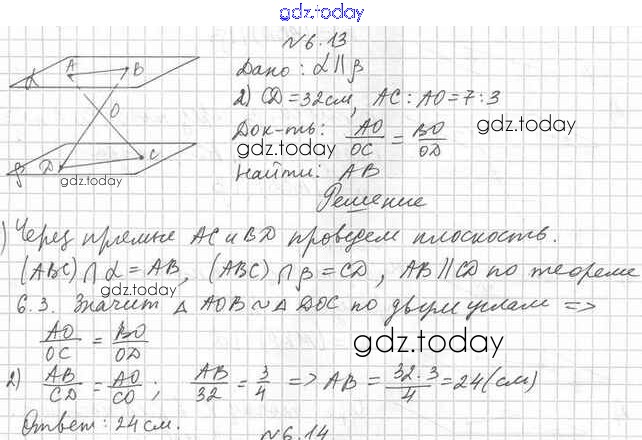 gdz.today
№6.13
A B
α
O
β D C
gdz.today
Дано: α∥β
2) CD=32см, AC:AO=7:3
Док-ть: AO/OC = BO/OD
gdz.today
gdz.today
Найти: AB
Решение
) Через прямые AC и BD проведем плоскость.
(ABC)∩α=AB, (ABC)∩β=CD, AB∥CD по теореме
gdz.today
6.3. Значит △AOB~△DOC по двум углам =>
AO/OC = BO/OD
gdz.today
2) AB/CD = AO/CO; AB/32 = 3/4 => AB = 32·3/4 = 24(см)
Ответ: 24см.
№6.14